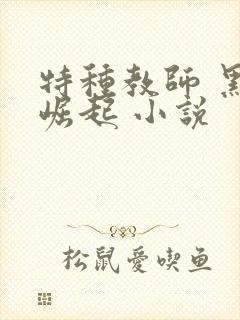 特種教師
崛起 小説
松鼠愛喫鱼